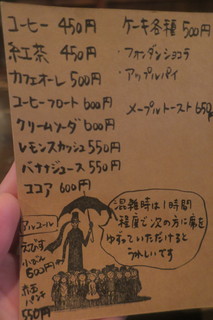 コーヒー 450円
紅茶 450円
カフェオーレ 500円
コーヒーフロート 600円
クリームソーダ 600円
レモンスカッシュ 550円
バナナジュース 550円
ココア 600円
ケーキ各種 500円
・フォンダンショコラ
・アップルパイ
メープルトースト 650円
混雑時は1時間
程度で次の方に席を
ゆずっていただけると
うれしいです
アルコール
えびす
小びん
600円
550円